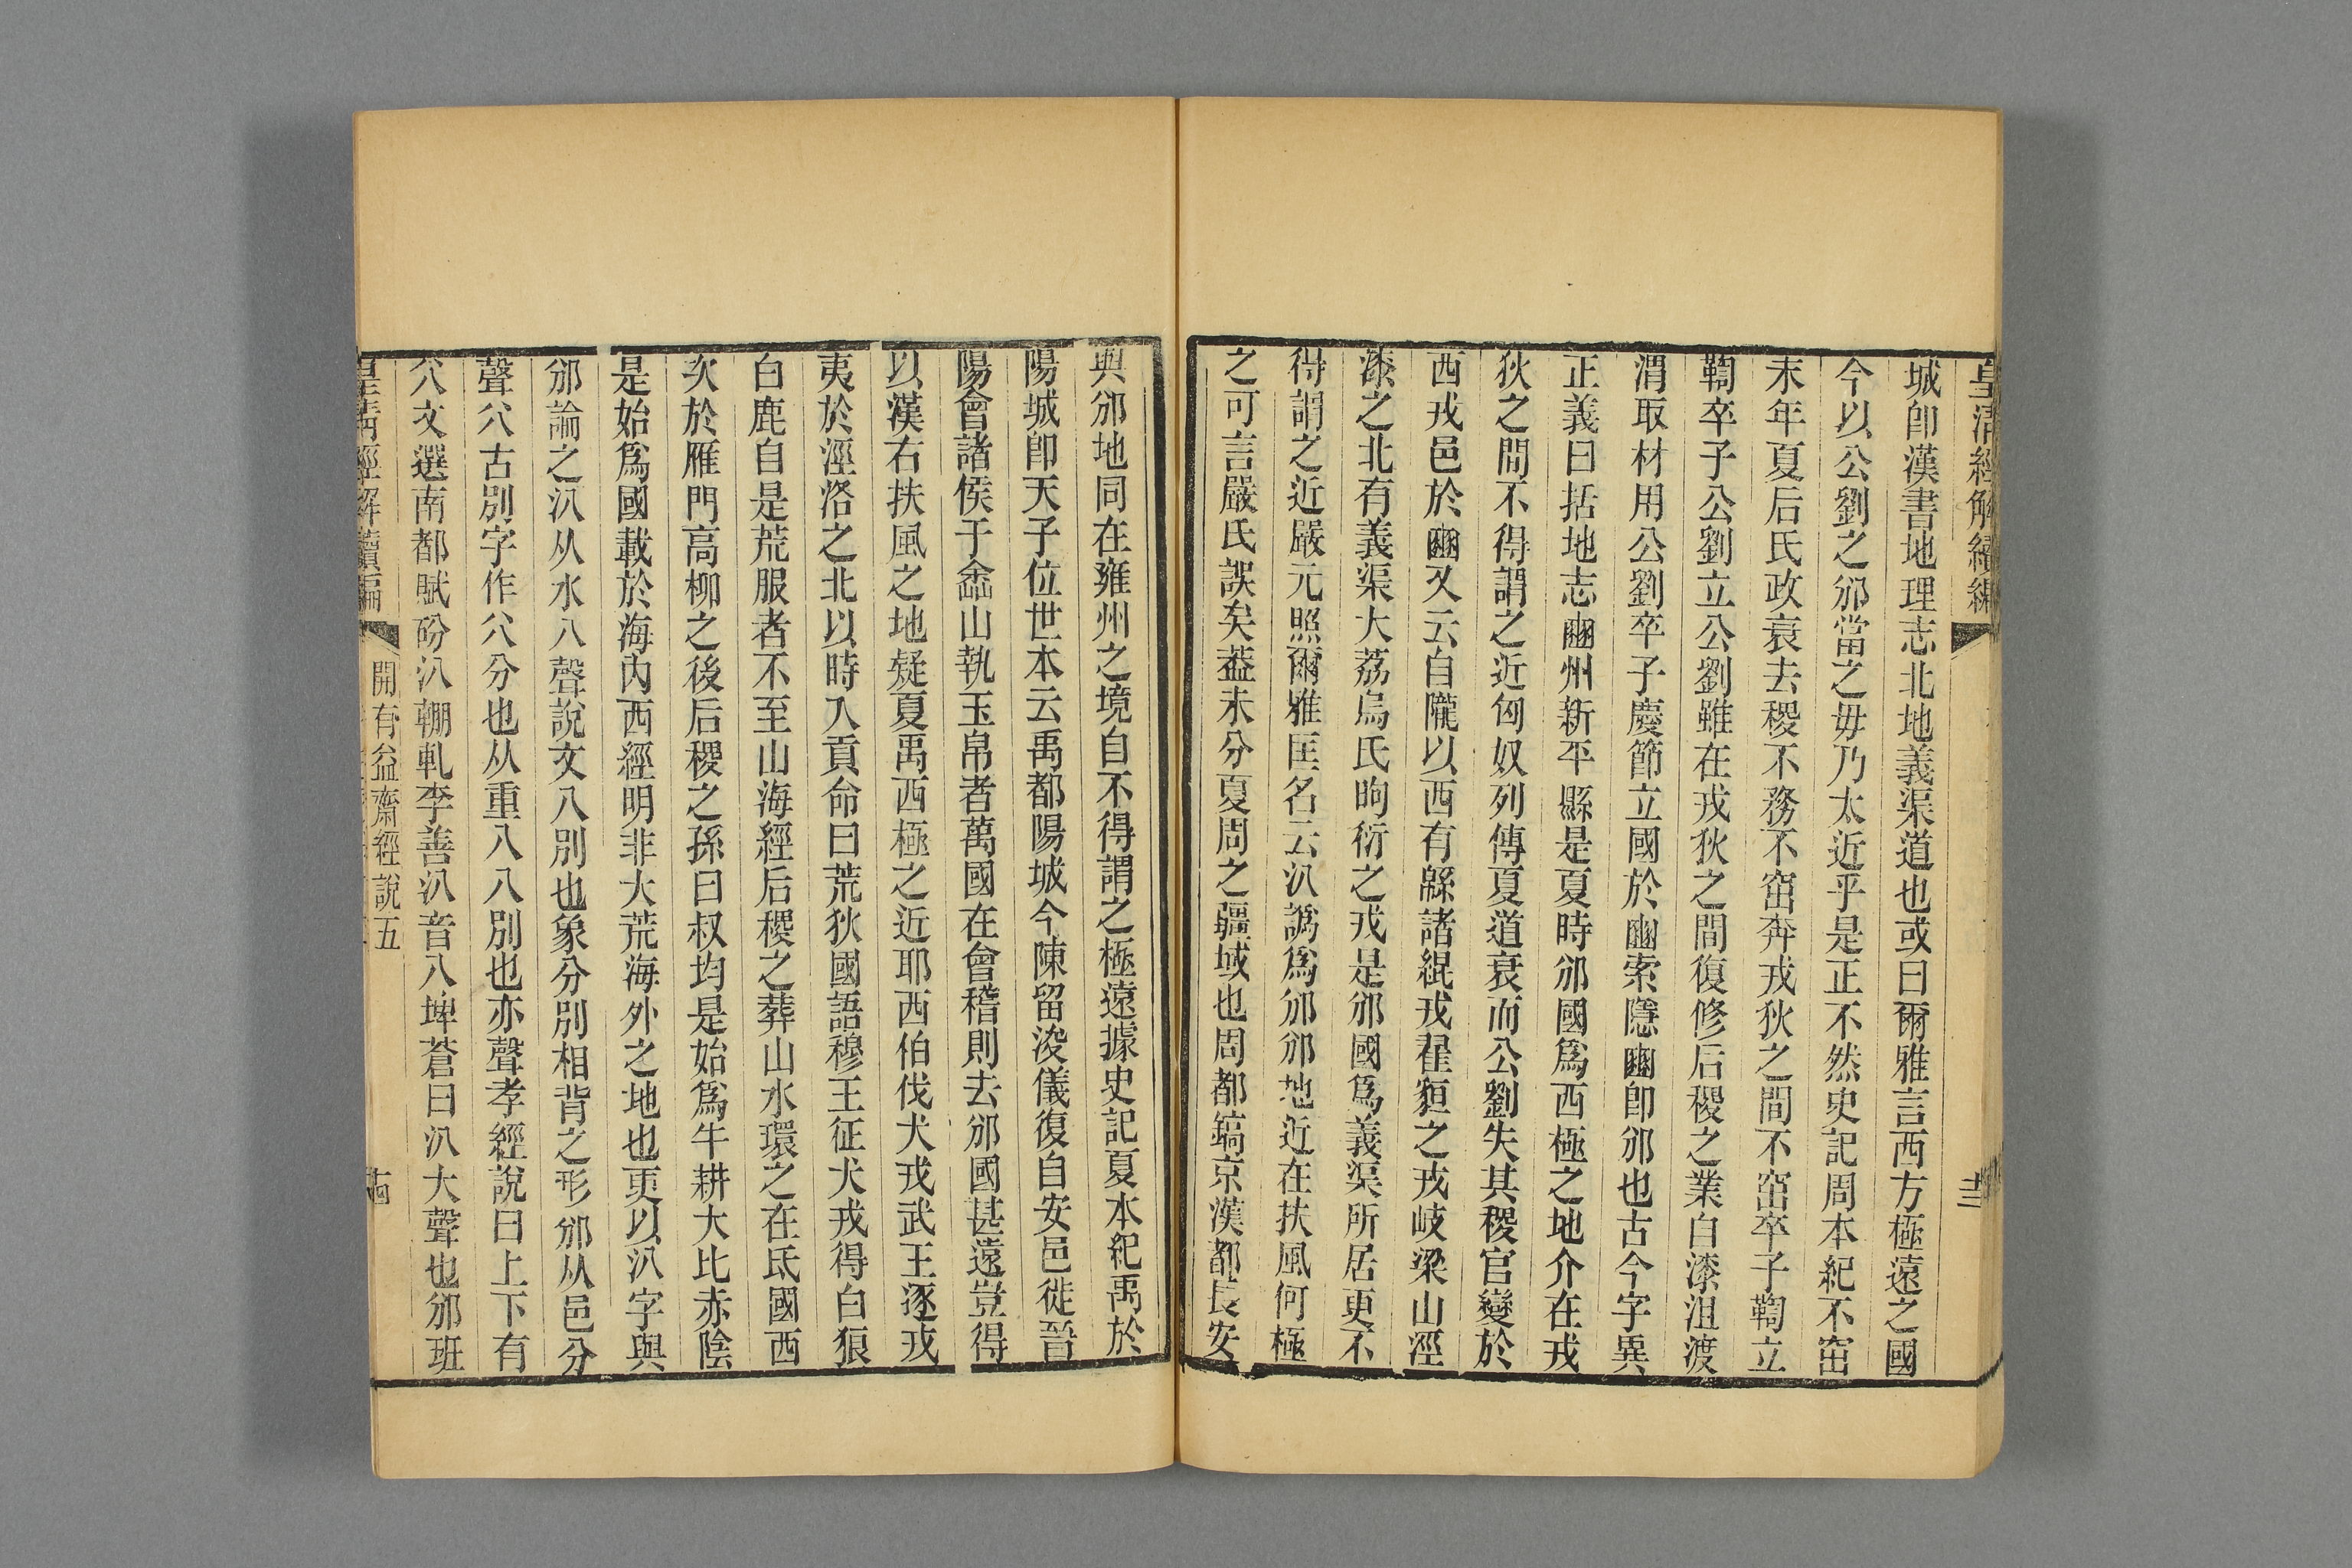 皇清經解續編
城卽漢書地理志北地義渠道也或曰爾雅言西方極遠之國
今以公劉之邠當之毋乃太近乎是正不然史記周本紀不窋
末年夏后氏政衰去稷不務不窋奔戎狄之間不窋卒子鞫立
鞫卒子公劉立公劉雖在戎狄之間復修后稷之業自漆沮渡
渭取材用公劉卒子慶節立國於豳索隱豳卽邠也古今字異
正義曰括地志豳州新平縣是夏時邠國爲西極之地介在戎
狄之間不得謂之近匈奴列傳夏道衰而公劉失其稷官變於
西戎邑於豳又云自隴以西有緜諸緄戎翟䝠之戎岐梁山涇
漆之北有義渠大荔烏氏昫衍之戎是邠國爲義渠所居更不
得謂之近嚴元照爾雅匡名云汃譌爲邠邠地近在扶風何極
之可言嚴氏誤矣葢未分夏周之疆域也周都鎬京漢都長安
與邠地同在雍州之境自不得謂之極遠據史記夏本紀禹於
陽城卽天子位世本云禹都陽城今陳留浚儀復自安邑徙晉
陽會諸侯于嵞山執玉帛者萬國在會稽則去邠國甚遠豈得
以漢右扶風之地疑夏禹西極之近耶西伯伐犬戎武王逐戎
夷於涇洛之北以時入貢命曰荒狄國語穆王征犬戎得白狼
白鹿自是荒服者不至山海經后稷之葬山水環之在氐國西
次於雁門高柳之後后稷之孫曰叔均是始爲牛耕大比赤陰
是始爲國載於海內西經明非大荒海外之地也更以汃字與
邠論之汃从水八聲說文八別也象分別相背之形邠从邑分
聲㕣古別字作㕣分也从重八八別也亦聲孝經說曰上下有
㕣文選南都賦砏汃輣軋李善汃音八埤蒼曰汃大聲也邠班
皇清經解續編
開有益齋經說五